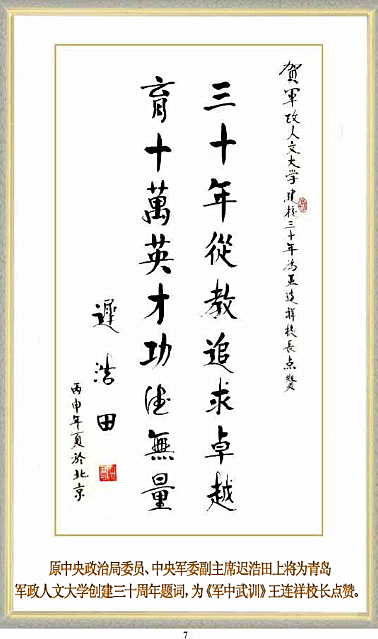 賀軍政人文大学建校三十年为王連祥校長点赞
三十年從教追求卓越
育十萬英才功德無量
遲浩田
丙申年夏於北京
原中央政治局委员、中央军委副主席迟浩田上将为青岛
军政人文大学创建三十周年题词,为《军中武训》王连祥校长点赞。
7